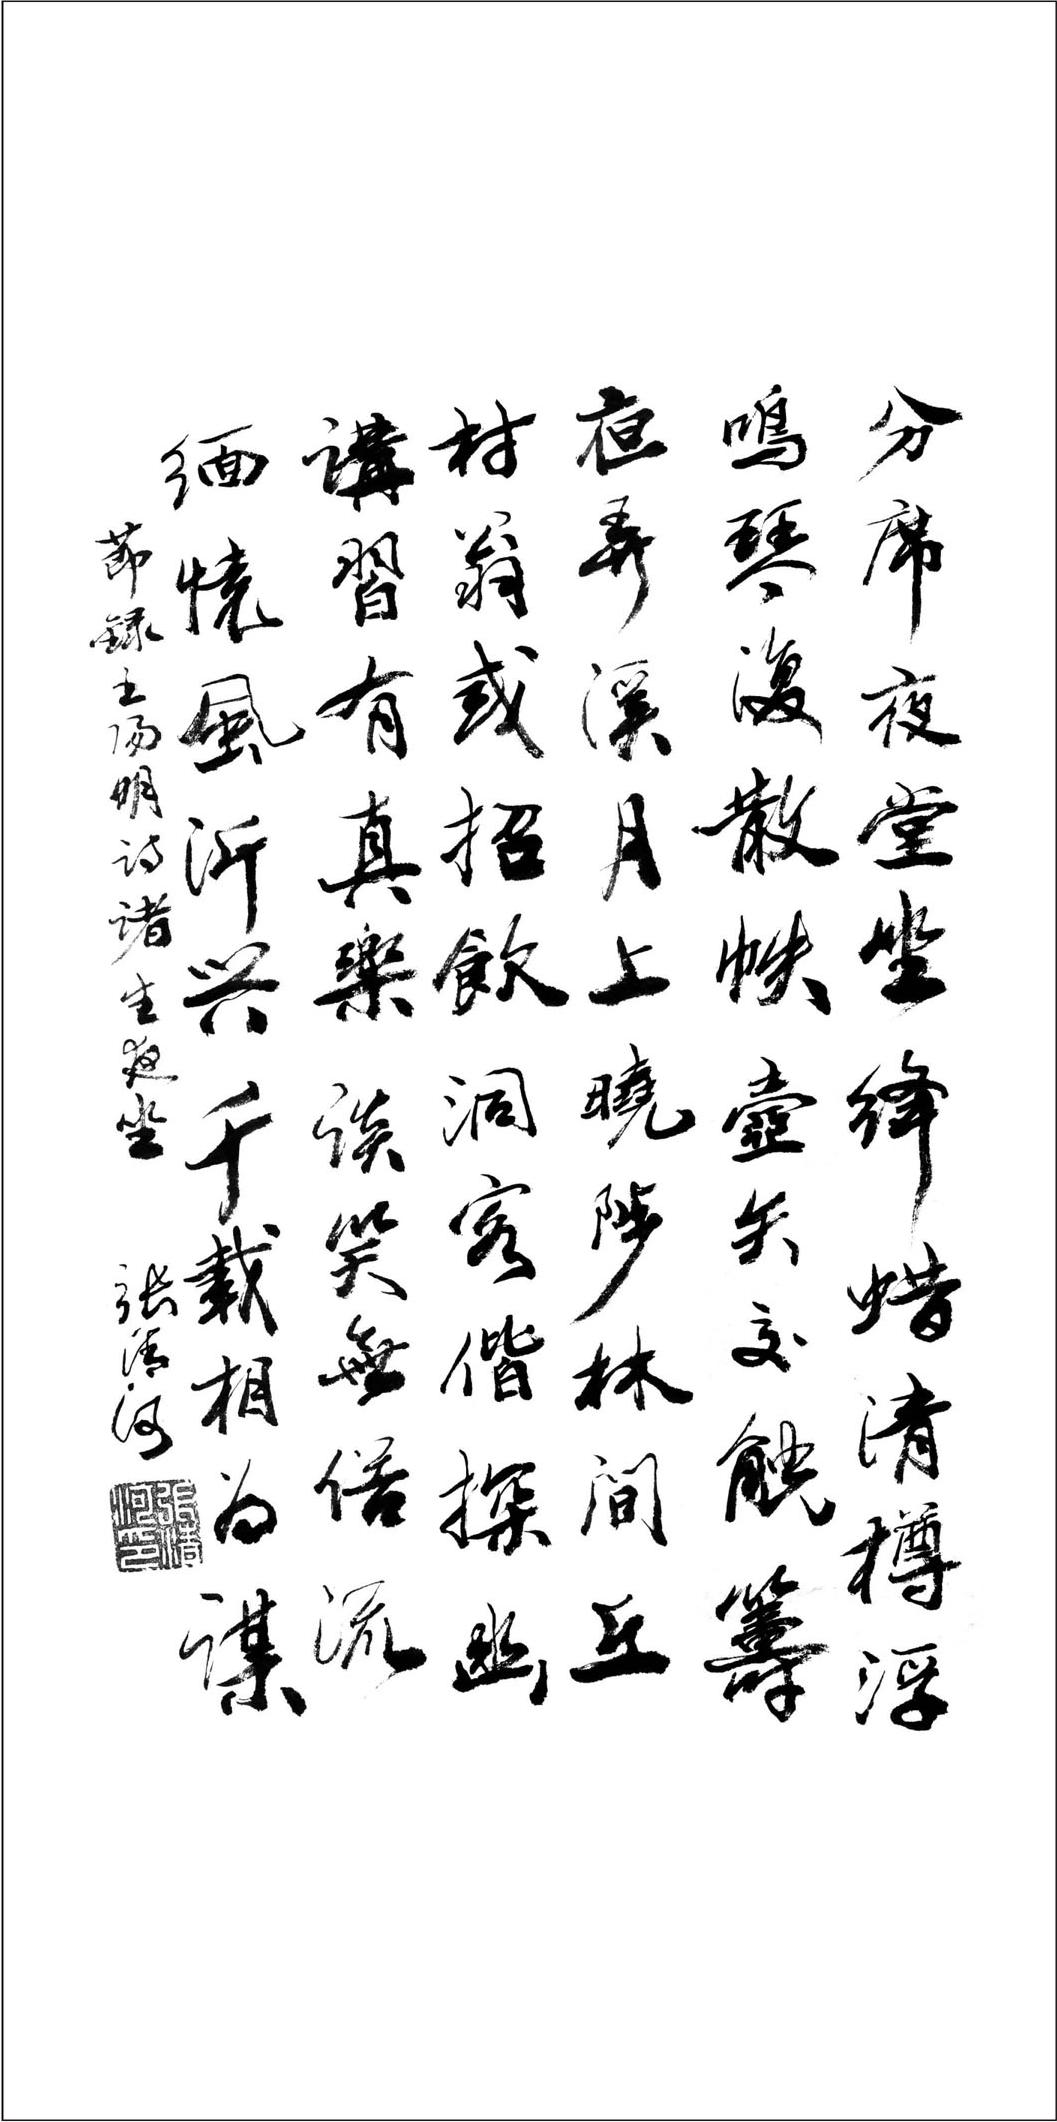 分席夜堂坐绛蜡清樽浮
鳴琴復散帙壺矢交觥籌
夜弄溪月上曉陟林間丘
村翁或招飲洞客偕探幽
講習有真樂談笑無俗流
缅懷風沂兴千載相为谋
節録王陽明詩诸生夜坐 張清河
張清河印